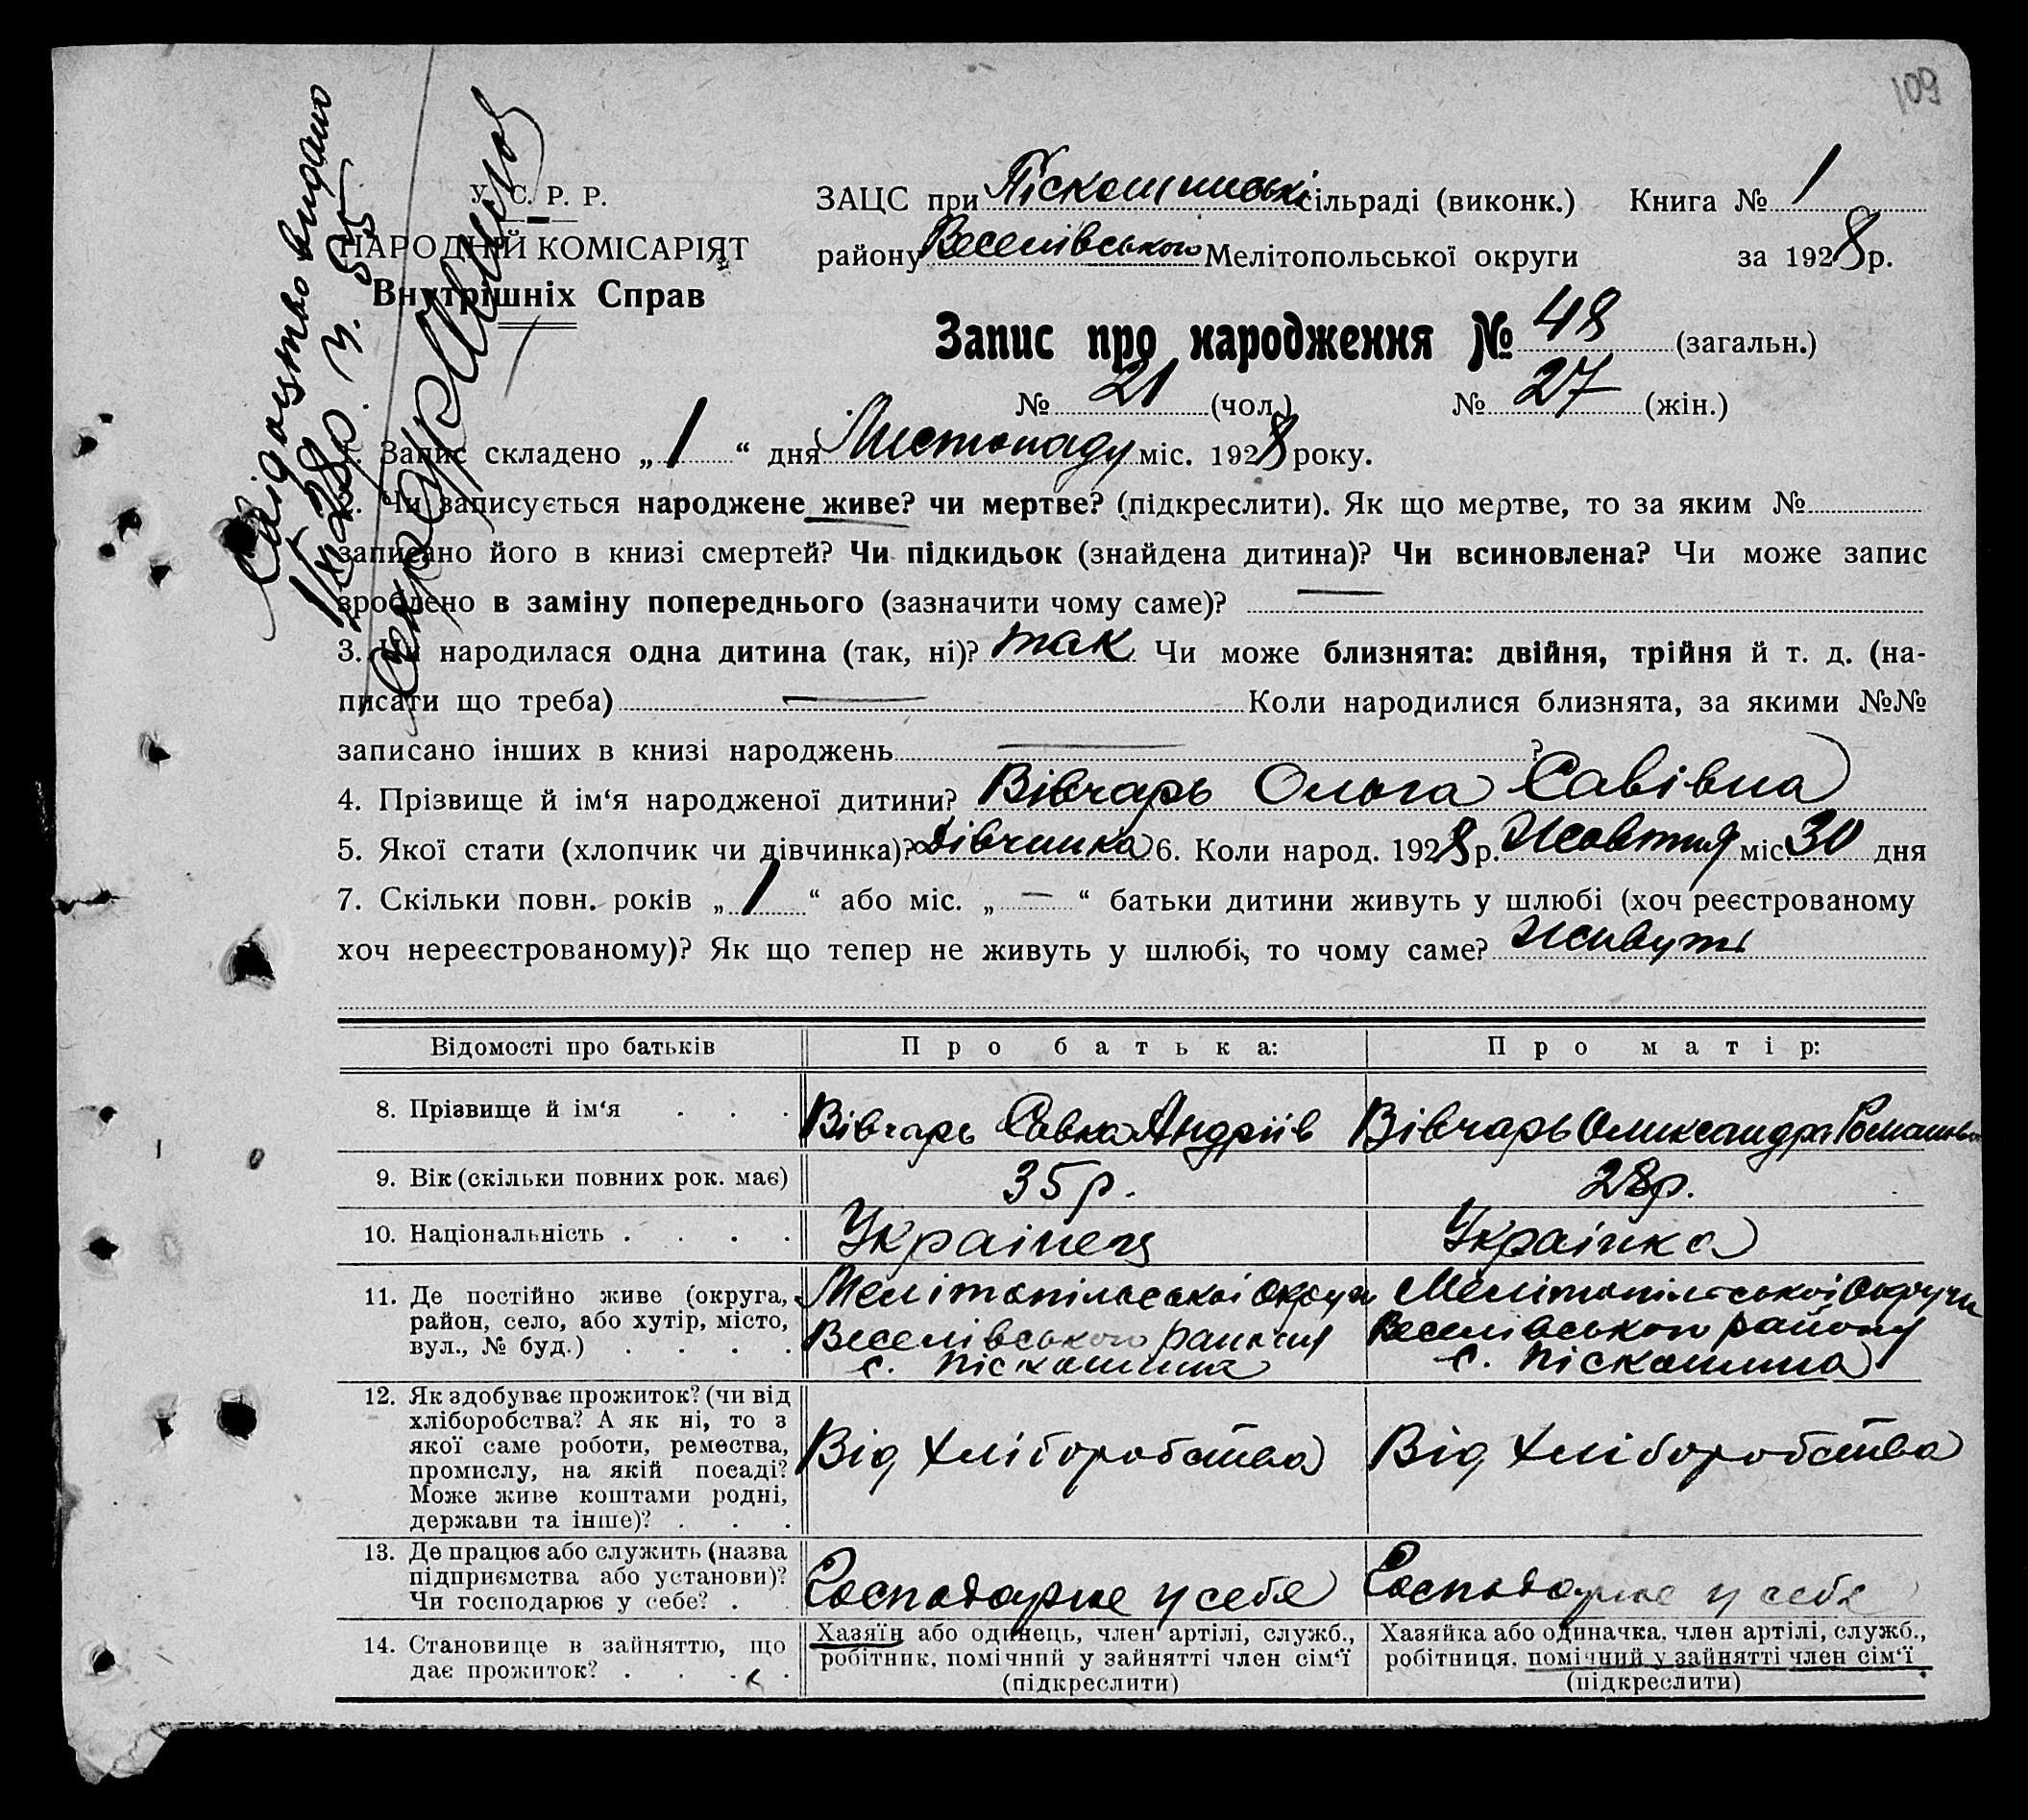 109
Свідоцтво видано
У. С. Р. Р.
НАРОДНІЙ КОМІСАРІЯТ
Внутрішніх Справ
ЗАЦС при Піскошинській сільраді (виконк.) Книга № 1
району Веселівського Мелітопольської округи за 1928 р.
Запис про народження № 48 (загальн.)
№ 21 (чол.) № 27 (жін.)
1. Запис складено „ 1 “ дня Листопаду міс. 1928 року.
2. Чи записується народжене живе? чи мертве? (підкреслити). Як що мертве, то за яким №
записано його в книзі смертей? Чи підкидьок (знайдена дитина)? Чи всиновлена? Чи може запис
зроблено в заміну попереднього (зазначити чому саме)? —
3. Чи народилася одна дитина (так, ні)? так Чи може близнята: двійня, трійня й т. д. (на-
писати що треба) — Коли народилися близнята, за якими №№
записано інших в книзі народжень — ?
4. Прізвище й ім‘я народженої дитини? Вівчарь Ольга Савівна
5. Якої стати (хлопчик чи дівчинка)? Дівчинка 6. Коли народ. 1928 р. Жовтня міс. 30 дня
7. Скільки повн. років „ 1 “ або міс. „ — “ батьки дитини живуть у шлюбі (хоч реєстрованому
хоч нереєстрованому)? Як що тепер не живуть у шлюбі, то чому саме? Живуть
Відомості про батьків Про батька: Про матір:
8. Прізвище й ім‘я . . . Вівчарь Савка Андріїв Вівчарь Олександра Романовна
9. Вік (скільки повних рок. має) 35 р. 28 р.
10. Національність . . . . Українець Українка
11. Де постійно живе (округа, Мелітопільської округи Мелітопільської Округи
район, село, або хутір, місто, Веселівського району Веселівського району
вул., № буд.) . . . . с. Піскошина с. Піскошина
12. Як здобуває прожиток? (чи від
хліборобства? А як ні, то з
якої саме роботи, ремества, Від хліборобства Від хліборобства
промислу, на якій посаді?
Може живе коштами родні,
держави та інше)? . . .
13. Де працює або служить (назва
підприємства або установи)? Господарює у себе Господарює у себе
Чи господарює у себе? .
14. Становище в зайняттю, що Хазяїн або одинець, член артілі, служб., Хазяйка або одиначка, член артілі, служб.,
дає прожиток? . . . . робітник, помічний у зайнятті член сім‘ї робітниця, помічний у зайнятті член сім‘ї
(підкреслити) (підкреслити)